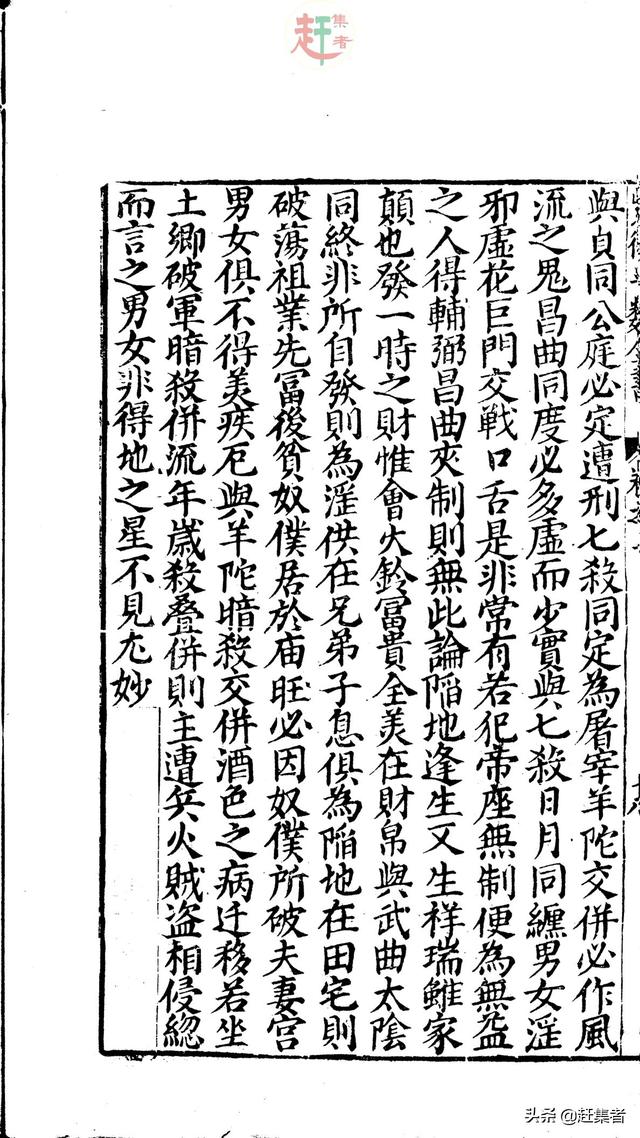 赶集者
與貞同公庭必定遭刑七殺同定為屠宰羊陀交併必作風
流之鬼昌曲同度必多虛而少實與七殺日月同纏男女滛
邪虛花巨門交戦口舌是非常有若犯帝座無制便為無益
之人得輔弼昌曲夾制則無此論陷地逢生又生祥瑞雖家
顛也發一時之財惟會火鈴富貴全美在財帛與武曲太陰
同終非所自發則為滛供在兄弟子息俱為陷地在田宅則
破蕩祖業先富後貧奴僕居於庙旺必因奴僕所破夫妻宮
男女俱不得美疾厄與羊陀暗殺交併酒色之病迁移若坐
土卿破軍暗殺併流年歲殺叠併則主遭兵火賊盗相侵緫
而言之男女非得地之星不見尤妙
头条 @赶集者